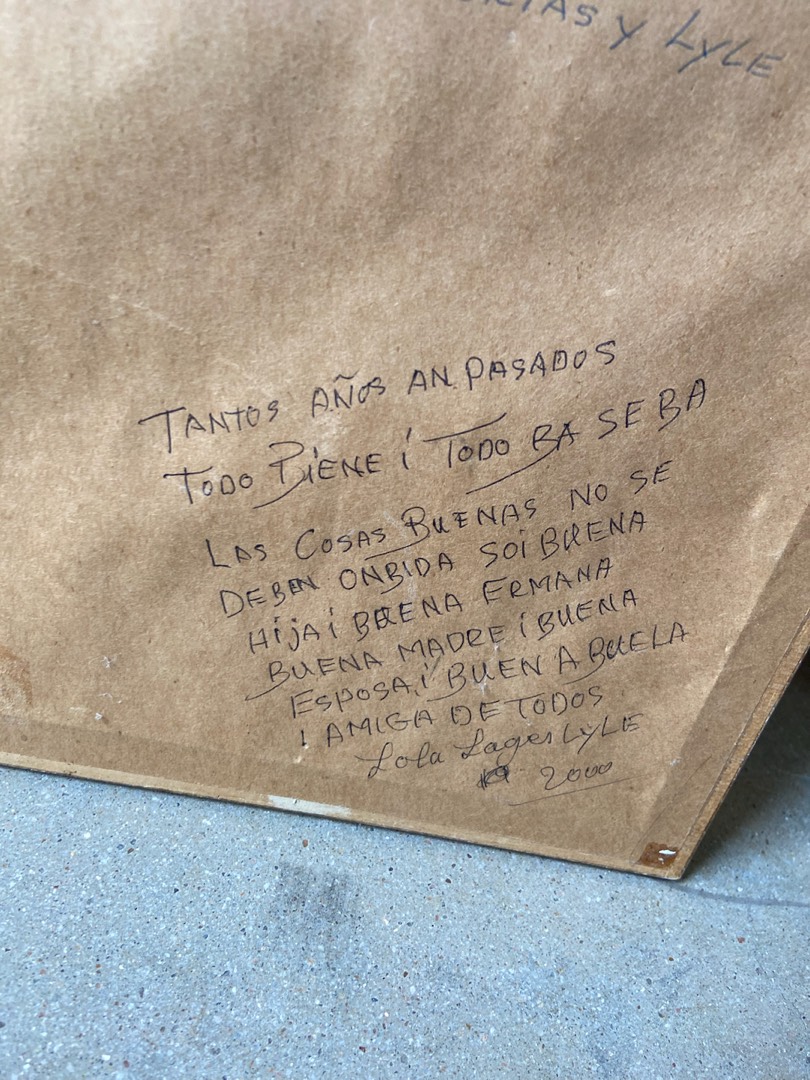 Y LYLE
TANTOS AÑOS AN PASADOS
TODO BIENE i TODO BA SE BA
LAS COSAS BUENAS NO SE
DEBEN ONBIDA SOi BUENA
HijA i BUENA ERMANA
BUENA MADRE i BUENA
ESPOSA, i BUEN A BUELA
i AMIGA DE TODOS
Lola Lages LYLE
2000